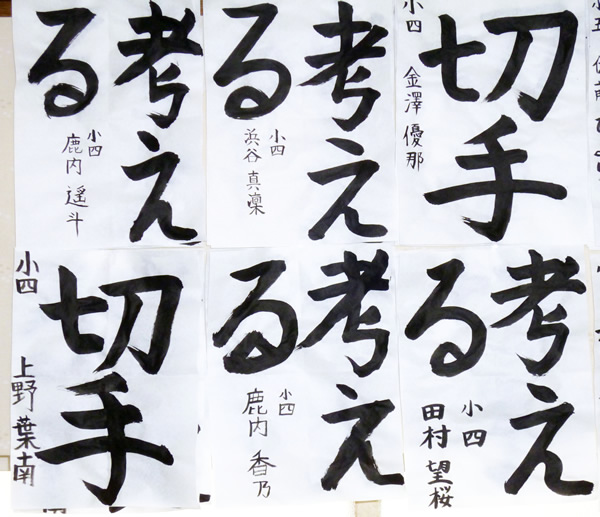 考え
る
小四
鹿内遥斗
考え
る
小四
浜谷真凜
切手
小四 金澤優那
切手
小四 上野葉南
考え
る
小四
鹿内香乃
考え
る
小四
田村望桜